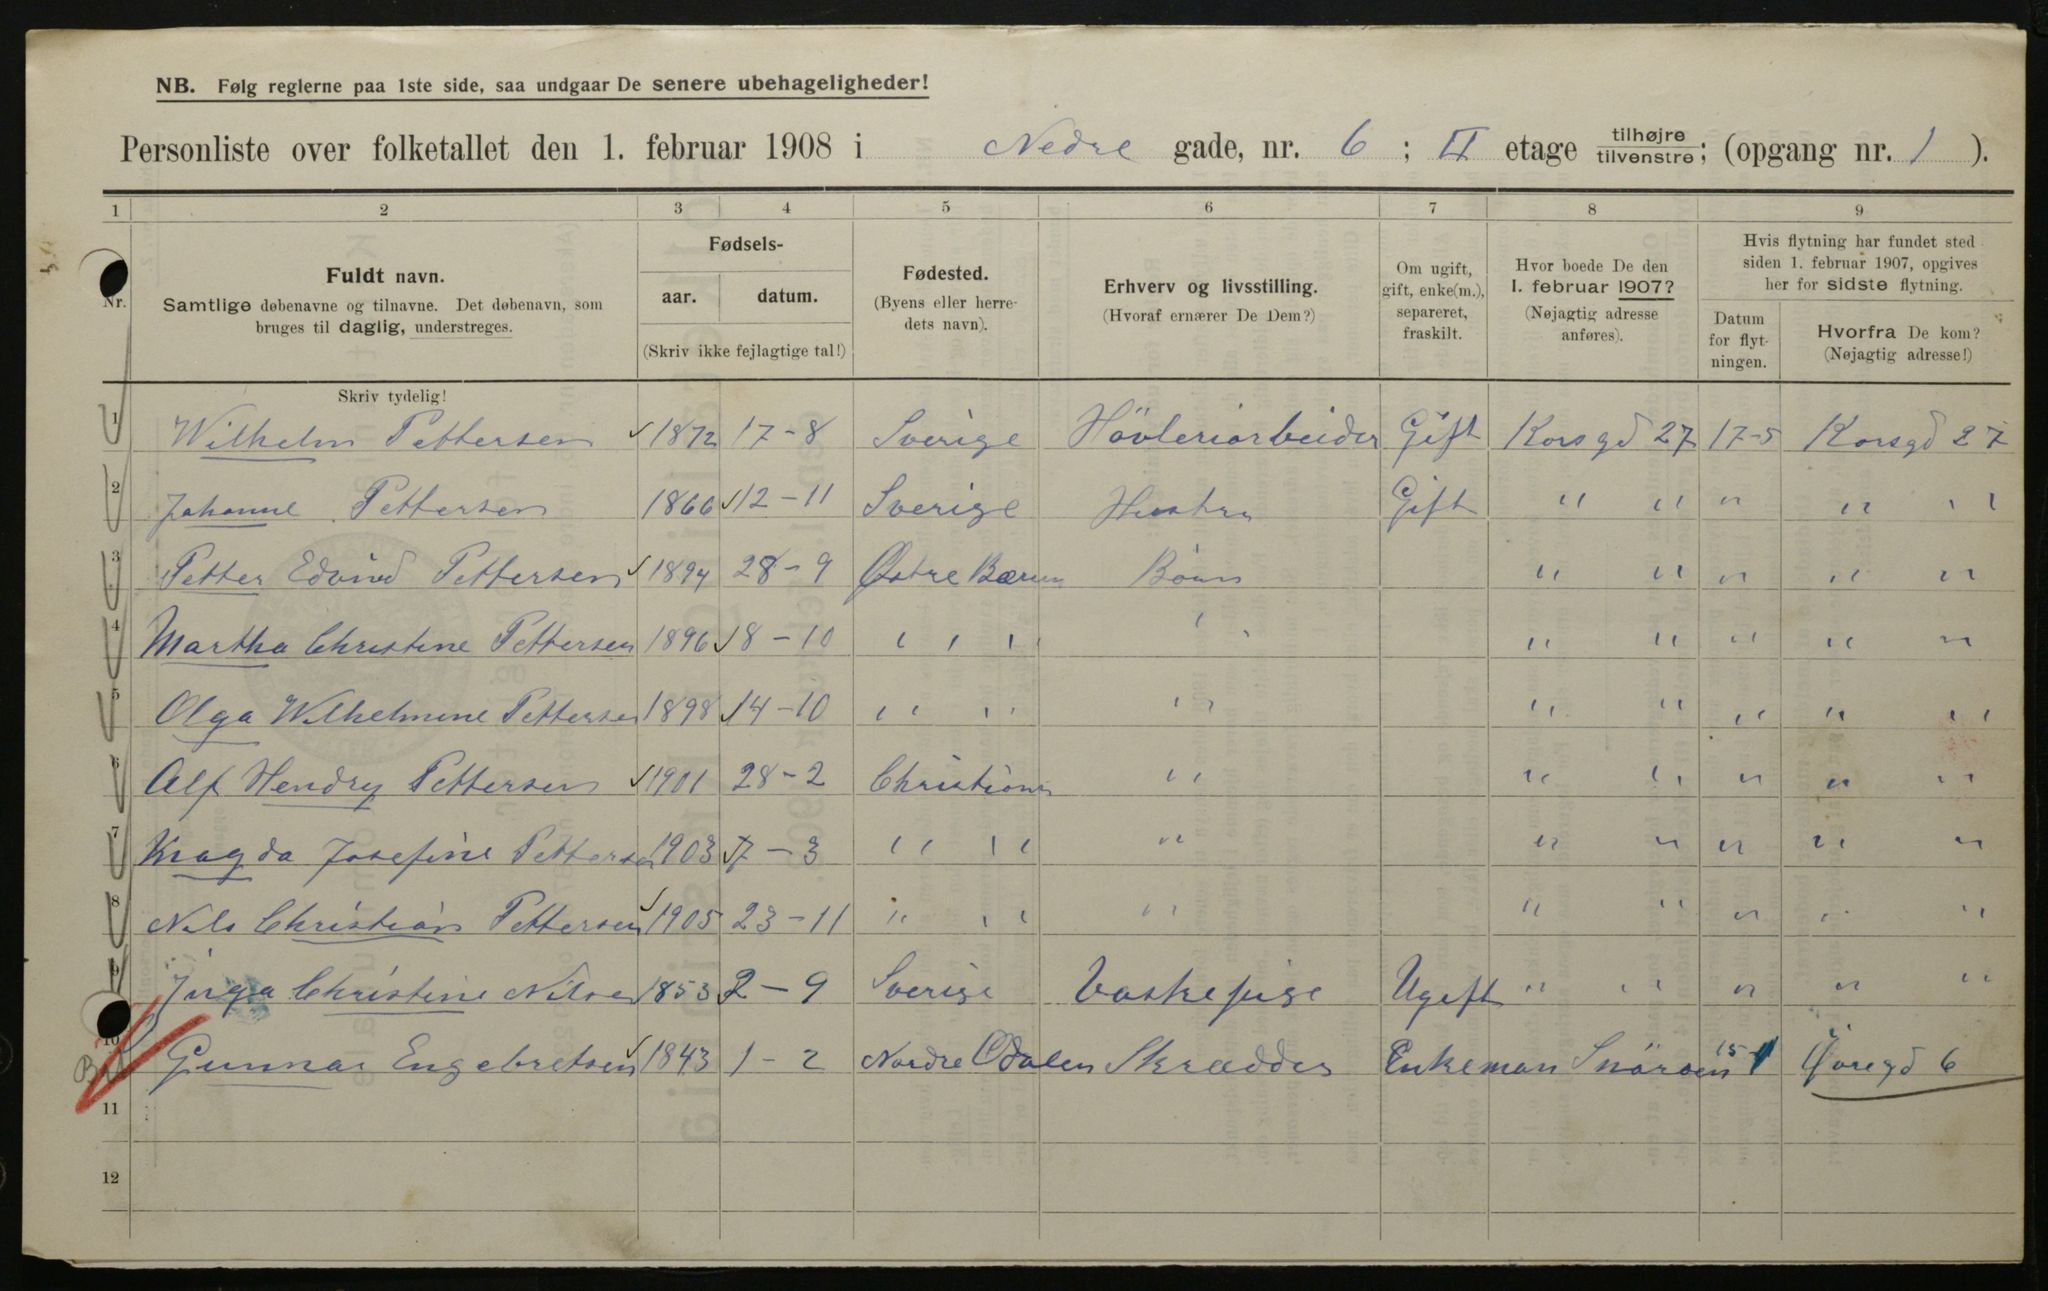 NB. Følg reglerne paa 1ste side, saa undgaar De senere ubehageligheder!
Personliste over folketallet den 1. februar 1908 i Nedre gade, nr. 6; II etage tilhøjre tilvenstre; (opgang nr. 1).
1 2 3 4 5 6 7 8 9
Nr.
Fuldt navn.
Samtlige døbenavne og tilnavne. Det døbenavn, som
bruges til daglig, understreges.
Skriv tydelig!
Fødsels-
aar. datum.
(Skriv ikke fejlagtige tal!)
Fødested.
(Byens eller herre-
dets navn).
Erhverv og livsstilling.
(Hvoraf ernærer De Dem?)
Om ugift,
gift, enke(m.),
separeret,
fraskilt.
Hvor boede De den
1. februar 1907?
(Nøjagtig adresse
anføres).
Hvis flytning har fundet sted
siden 1. februar 1907, opgives
her for sidste flytning.
Datum
for flyt-
ningen.
Hvorfra De kom?
(Nøjagtig adresse!)
1 Wilhelm Pettersen 1872 17-8 Sverige Hövleriarbeider Gift Korsgd 27 17-5 Korsgd 27
2 Johanne Pettersen 1866 12-11 Sverige Hustru Gift " " " " "
3 Petter Edvind Pettersen 1894 28-9 Østre Bærum Börn " " " " "
4 Martha Christine Pettersen 1896 18-10 " " " " " " " " "
5 Olga Wilhelmine Pettersen 1898 14-10 " " " " " " " "
6 Alf Hendry Pettersen 1901 28-2 Christiania " " " " " "
7 Magda Josefine Pettersen 1903 7-3 " " " " " " " "
8 Nils Christian Pettersen 1905 23-11 " " " " " " " "
9 Inga Christine Nilsen 1853 2-9 Sverige Vaskepige Ugift " " " " "
10 Gunnar Engebretsen 1843 1-2 Nordre Odalen Skrædder Enkeman Snöroen 15-1 Övregd 6
11
12